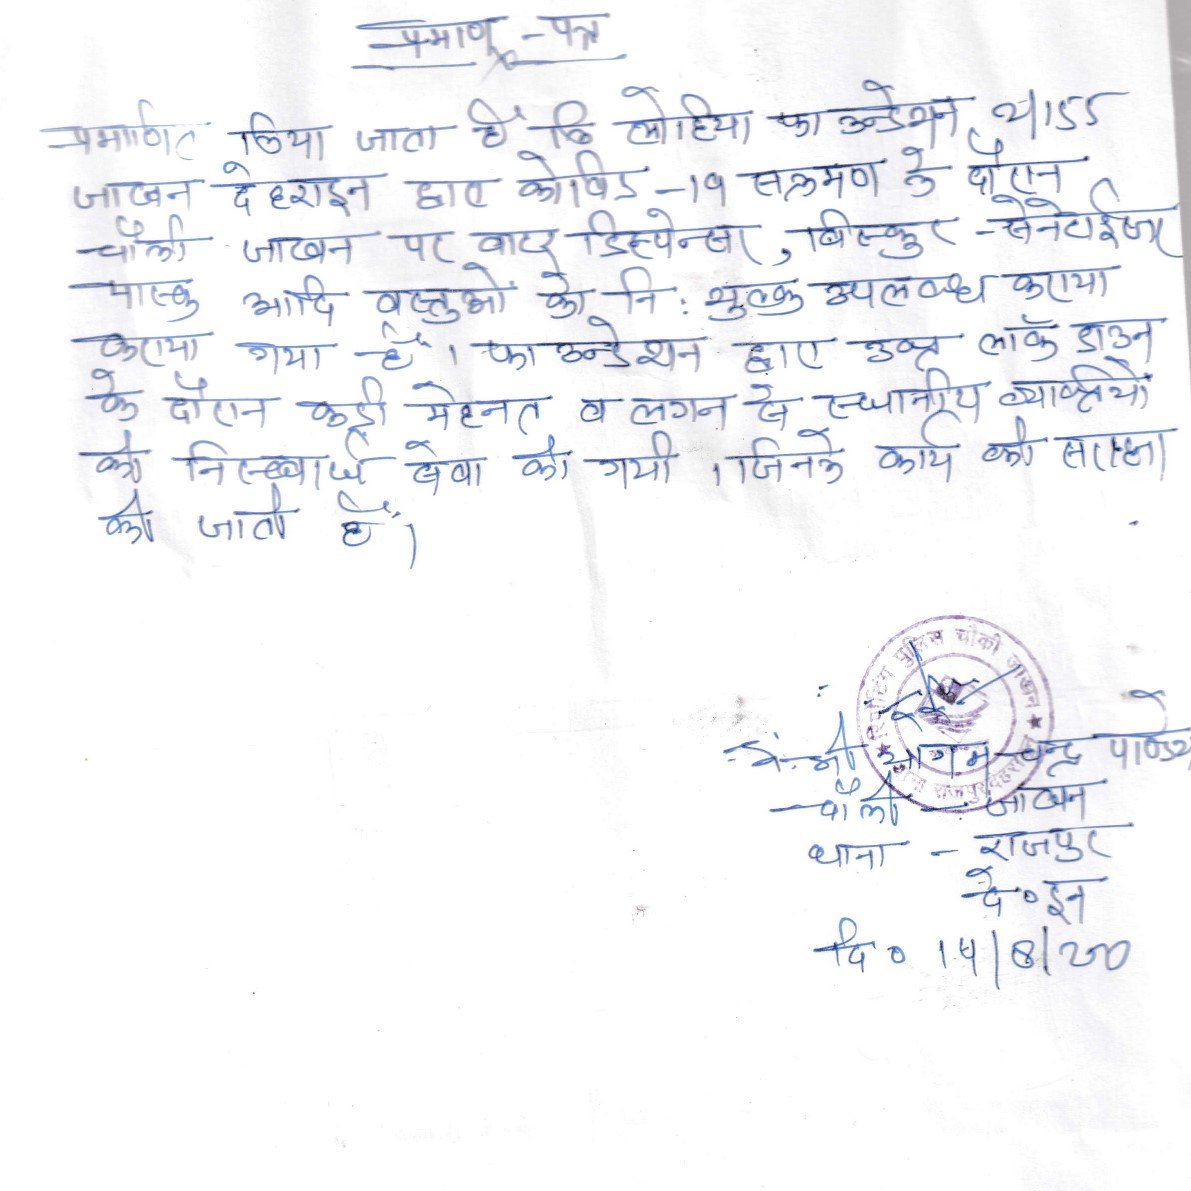 प्रमाण-पत्र
प्रमाणित किया जाता है कि लोहिया फाउन्डेशन, 2/155
जाखन देहरादून द्वारा कोविड-19 सक्रमण के दौरान
चौकी जाखन पर वाटर डिस्पेन्सर, बिस्कुट - सेनेटाईजर
मास्क आदि वस्तुओं को नि:शुल्क उपलब्ध कराया
कराया गया है। फाउन्डेशन द्वारा उक्त लॉक डाउन
के दौरान कड़ी मेहनत व लगन से स्थानीय व्यक्तियों
की निस्वार्थ सेवा की गयी। जिनके कार्य की सराहना
की जाती है।
रिपोर्टिंग पुलिस चौकी जाखन
थाना राजपुर देहरादून
चौ.प्र. चन्द्र पाण्डेय
चौकी - जाखन
थाना - राजपुर
दे०दून
दि० 14/8/20